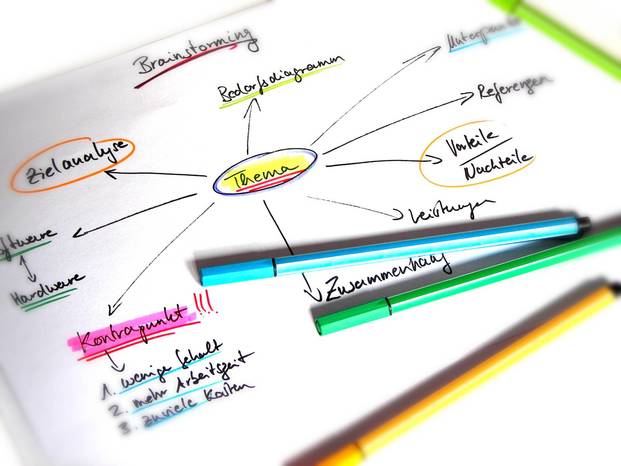 Brainstorming
Bedarfsdiagramm
Unterpunkte
Referenzen
Zielanalyse
Thema
Vorteile
Nachteile
Leistungen
Software
Hardware
Zusammenhang
Kontrapunkt !!!
1. wenige Gehalt
2. mehr Arbeitszeit
3. zuviele Kosten